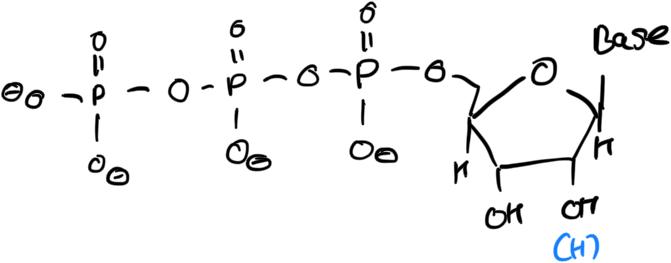 O O O Base
⊖O - P - O - P - O - P - O O
O⊖ O⊖ O⊖ H H
OH OH
(H)